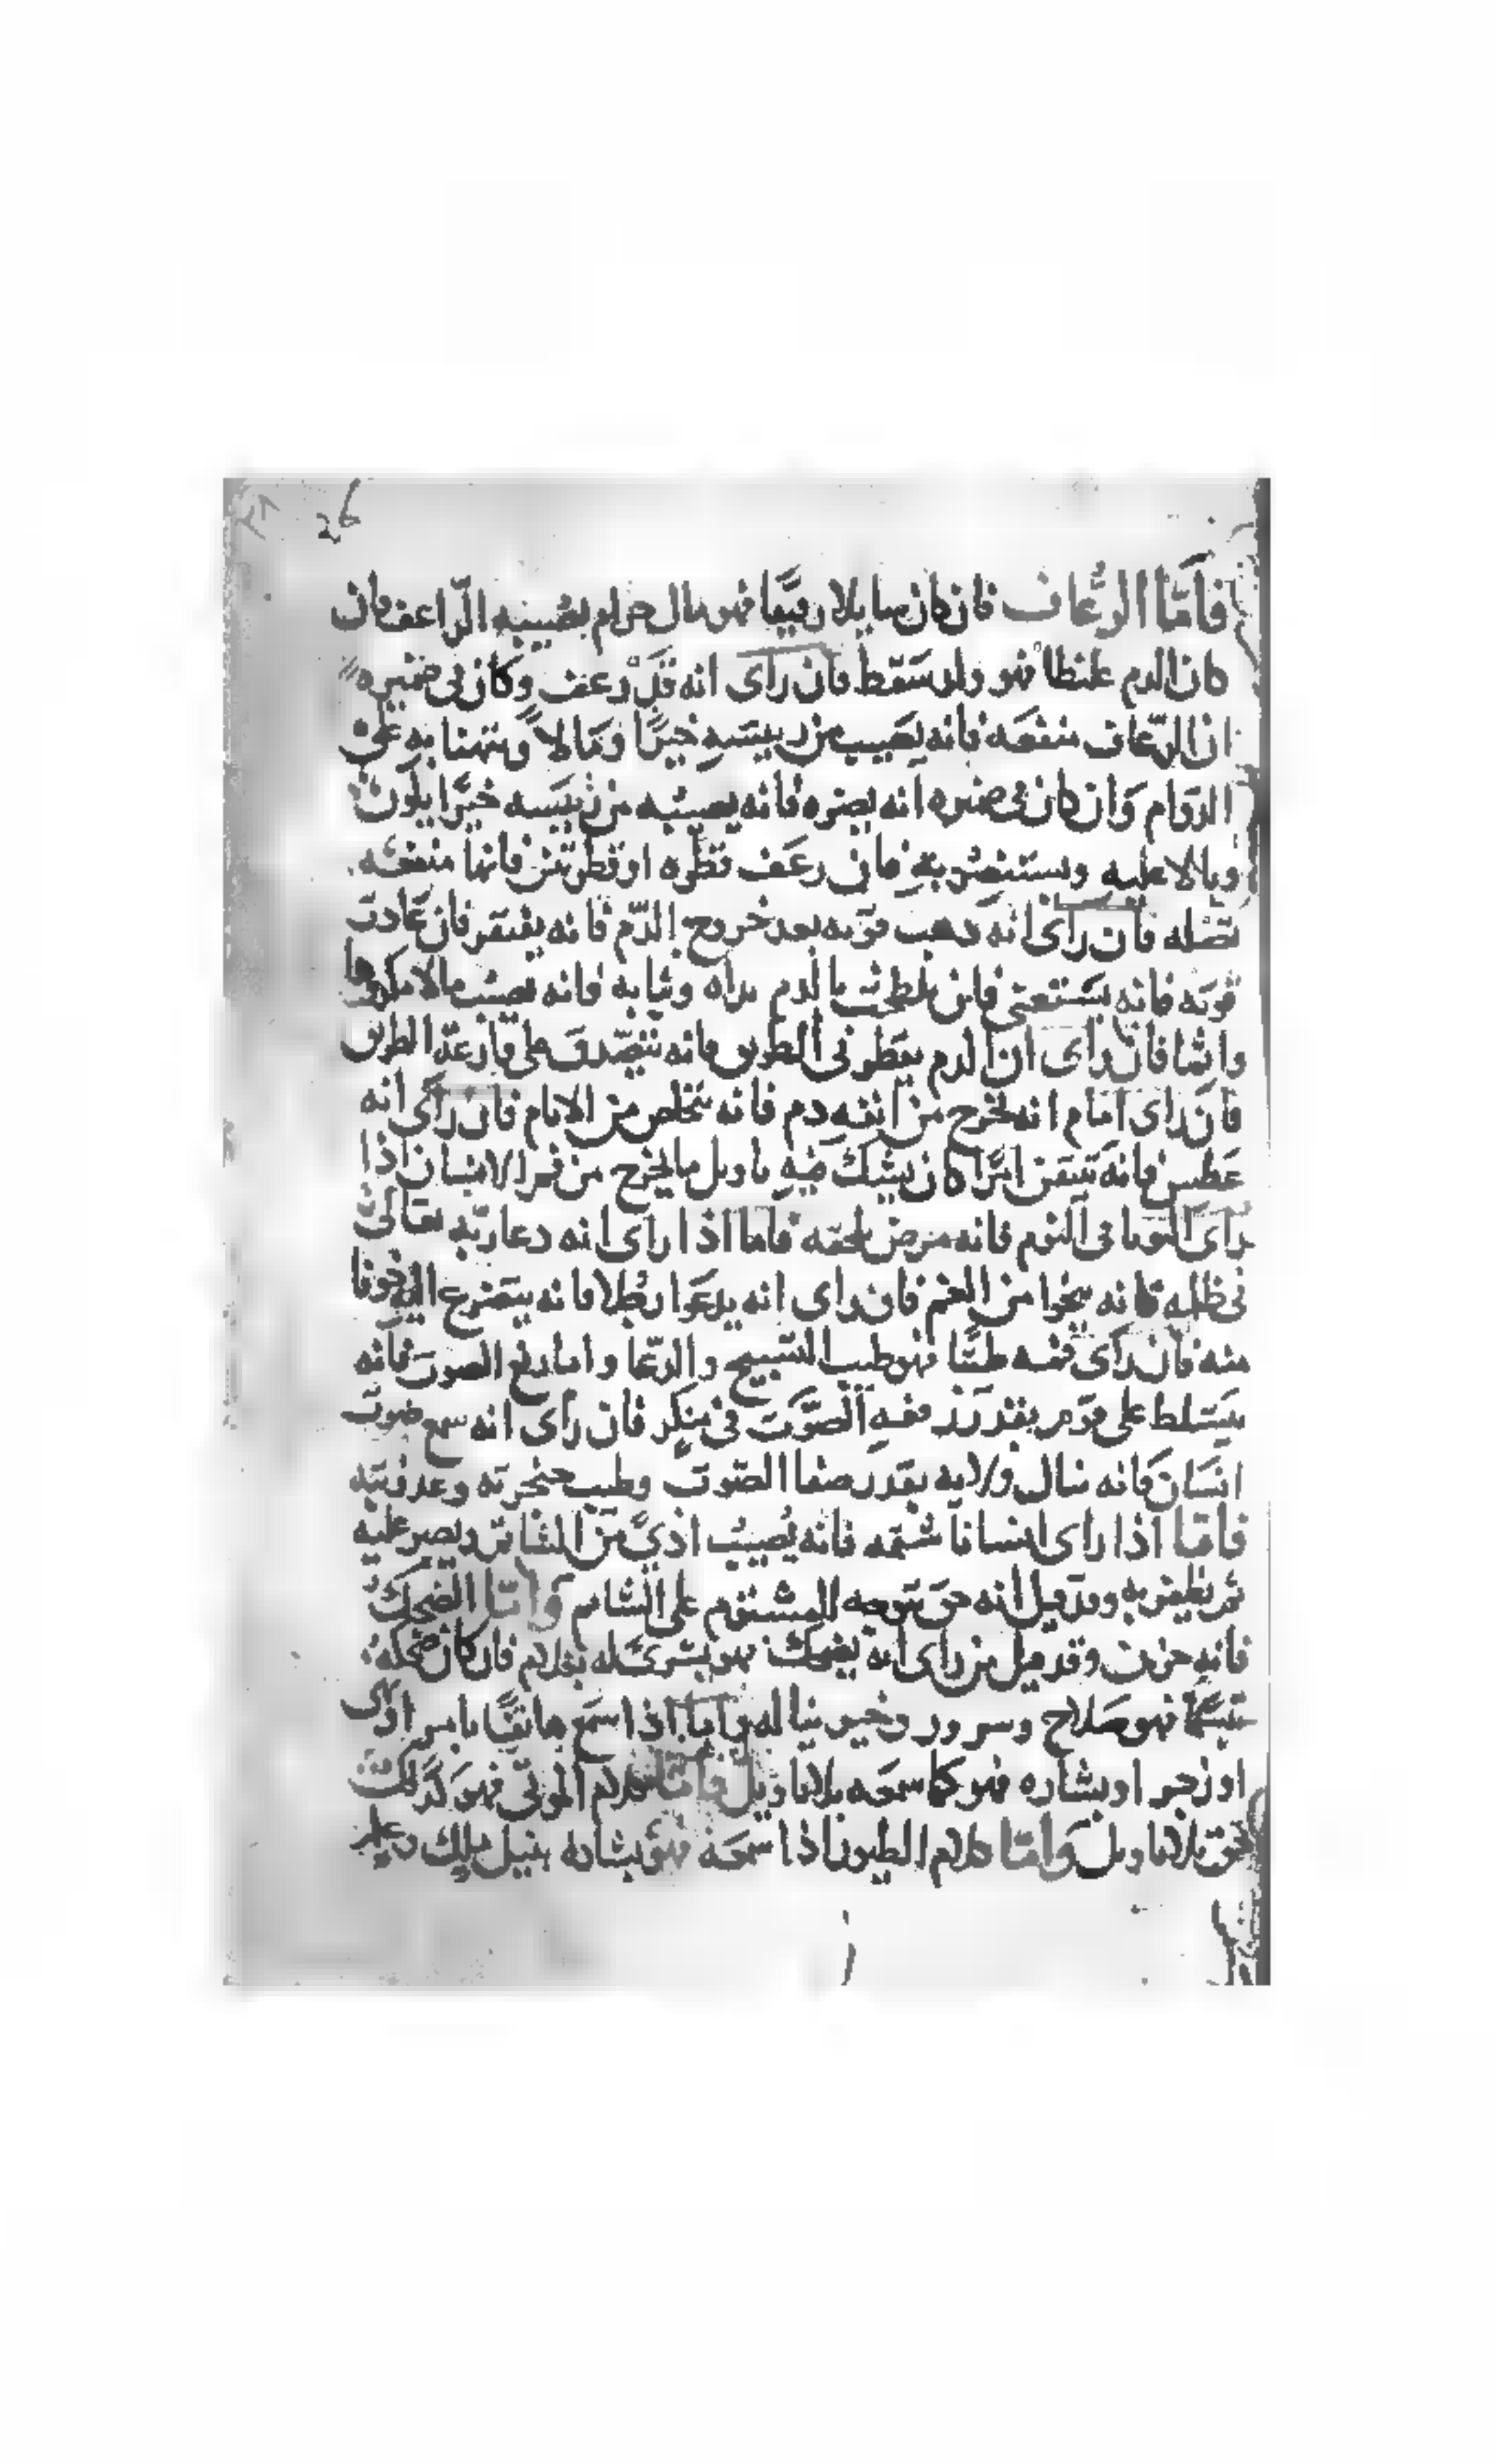 26
فاَمَّا الرُّعاف فان كان سايلا رقيقا فهو مال حرام يصيبه الرّاعف فان
كان الدم غليظا فهو ولد سَقط فان رأى انه قد رعف وكان في ضميره
ان الرّعاف منفعه فانه يصَيب من رييسهِ خيرًا ومَالا ويتهنا به على
الدوام وَان كان في ضميره انه يضره فانه يصيبه من رييسه خيرًا يكون
وبالا عليه ويستضر به فان رعَف قطره او قطرتين فانها منفعه
تصله فان رأى انه ذهب قوته بعد خروج الدّم فانه يفتقر فان عَادت
قوته فانه يستغنى فان تلطخت بالدم يداه وثيابه فانه يصيب مالا مكروها
واثما فان رأى ان الدم يقطر في الطريق فانه يتصّدق على قارعة الطريق
فان راى امَام انه يخرج من انفه دم فانه يتخلص من الاثام فان رأى انه
عَطس فانه يتيقن امرًا كان يشك فيهِ تاويل ما يخرج من فم الانسان اذا
راى الثوبا في النوم فانه مرض يلحقه فاما اذا رأى انه دعا ربّه تعالى
في ظلمه فانه ينجوا من الغم فان راى انه يدعَوا رجُلا فانه يتضرع اليه خوفا
منه فان رأى فيه فهو طيب التسبيح والدّعا واما رفع الصوت فانه
يتسلط على قوم بقدر رفعهِ الصَّوت في منكر فان رأى انه سمع صوت
انسَان فانه ينال ولايه بقدر صفا الصّوت وطيب حنجرته وعذوبته
فامّا اذا راى انسانا شتمه فانه يُصيب اذيً من الشاتم ويصبر عليه
ثم يظفر به وقد قيل انه حق يتوجه للمشتوم على الشاتم وَامّا الضحِك
فانه حزن وقد قيل من راى انه يضحك فهو بشرى له بغلام فان كان ضحكه
تبسّمًا فهو صَلاح وسرور وخير يناله واما اذا سمَع هاتفًا بامر او نهي
او زجر او بشاره فهو كما سمعَه بلا تاويل فامّا كلام الموتى فهو كذلك
حق بلا تاويل وَامّا كلام الطيور اذا سمعَه فهو بشاره بنيل ملك وعلم